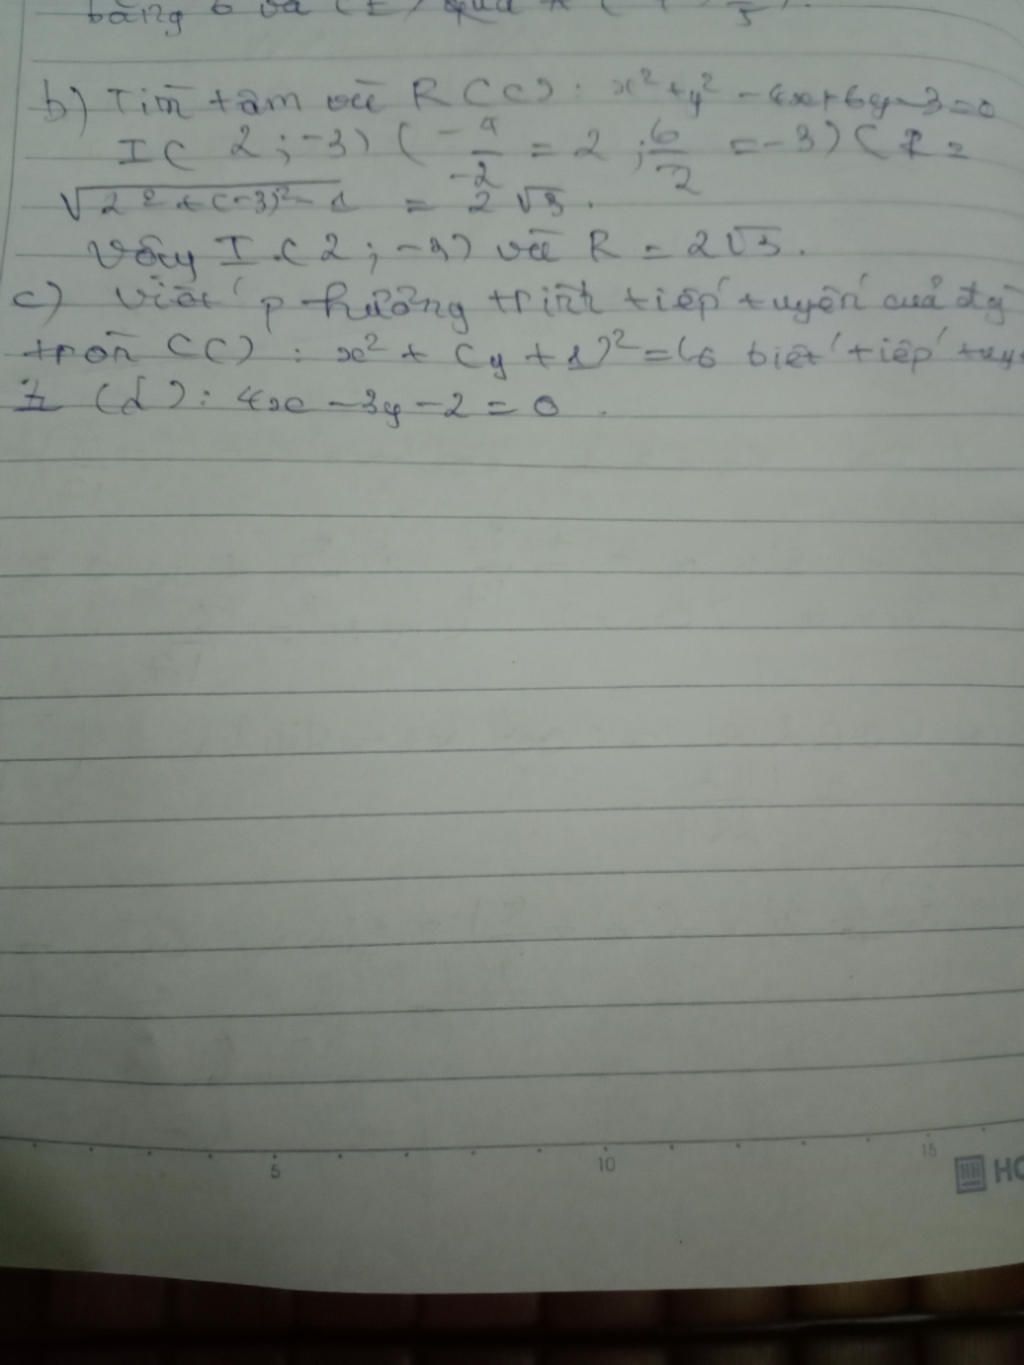 bằng 6 và (E) qua A (
b) Tìm tâm và R (C): x² + y² - 4x + 6y - 3 = 0
I( 2 ; -3) ( -4/-2 = 2 ; 6/2 = -3) ( R =
√2² + (-3)² - 1 = 2√3.
Vậy I ( 2 ; -3) và R = 2√3.
c) Viết phương trình tiếp tuyến của đg
tròn (C) : x² + (y + 1)² = 16 biết tiếp tuy
⊥ (d): 4x - 3y - 2 = 0 .
5 10 15
HO